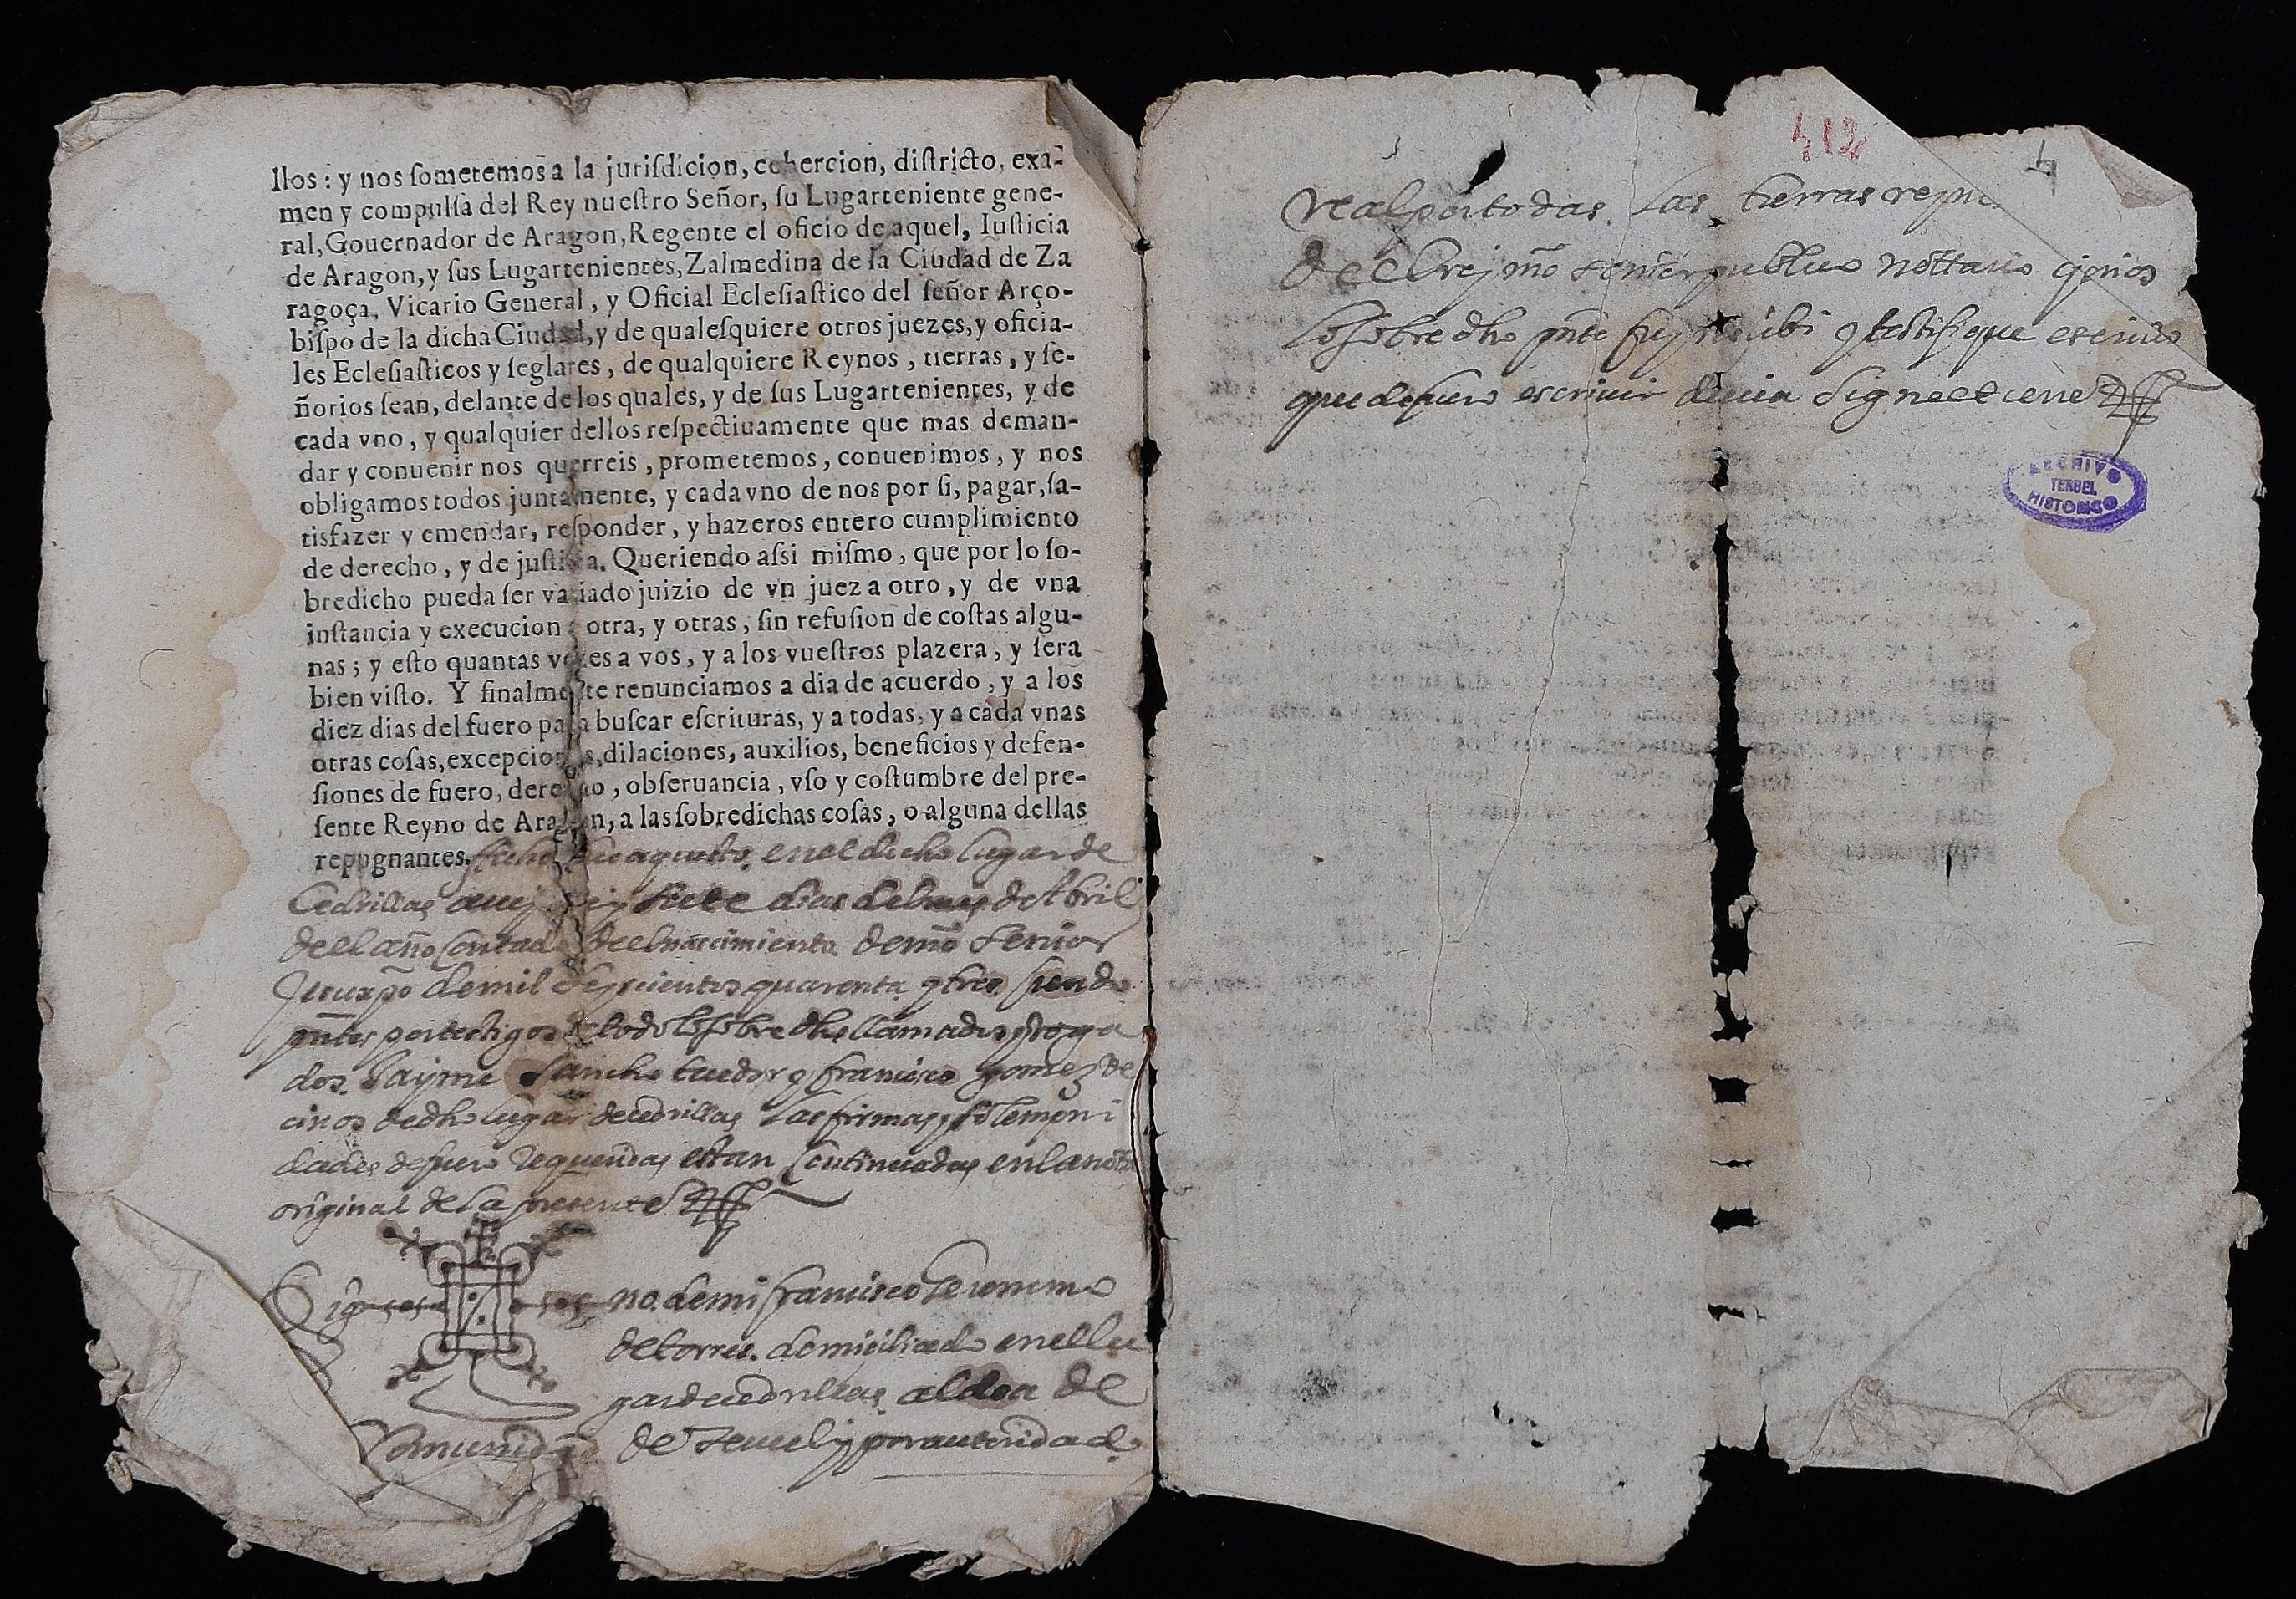 llos: y nos ſometemos a la jurisdicion, cohercion, diſtricto, exa-
men y compulſa del Rey nueſtro Señor, ſu Lugarteniente gene-
ral, Gouernador de Aragon, Regente el oficio de aquel, Iuſticia
de Aragon, y ſus Lugartenientes, Zalmedina de la Ciudad de Za
ragoça, Vicario General, y Oficial Ecleſiaſtico del ſeñor Arço-
biſpo de la dicha Ciudad, y de qualeſquiere otros juezes, y oficia-
les Ecleſiaſticos y ſeglares, de qualquiere Reynos, tierras, y ſe-
ñorios ſean, delante de los quales, y de ſus Lugartenientes, y de
cada vno, y qualquier dellos reſpectiuamente que mas deman-
dar y conuenir nos querreis, prometemos, conuenimos, y nos
obligamos todos juntamente, y cada vno de nos por ſi, pagar, ſa-
tisfazer y emendar, reſponder, y hazeros entero cumplimiento
de derecho, y de juſticia. Queriendo aſsi miſmo, que por lo ſo-
bredicho pueda ſer variado juizio de vn juez a otro, y de vna
inſtancia y execucion a otra, y otras, ſin refuſion de coſtas algu-
nas; y eſto quantas vezes a vos, y a los vueſtros plazera, y ſera
bien viſto. Y finalmente renunciamos a dia de acuerdo, y a los
diez dias del fuero para buſcar eſcrituras, y a todas, y a cada vnas
otras coſas, excepciones, dilaciones, auxilios, beneficios y defen-
ſiones de fuero, derecho, obſeruancia, vſo y coſtumbre del pre-
ſente Reyno de Aragon, a las ſobredichas coſas, o alguna dellas
repugnantes. fecho fue aquesto en el dicho lugar de
Cedrillas a siete dias del mes de Abril
de el año Contado de el naçimiento de nrō Señor
Jesuxpō de mil seyscientos quarenta y tres siendo
pntes por testigos de todo lo sobredho llamados y roga
dos Jayme Sancho texedor y francisco gomez ve
cinos de dho lugar de cedrillas las firmas y solempni
dades de fuero requeridas estan Continuadas en la nota
original de la presente
Sig no de mi francisco Jeronimo
de torres domiciliado en el lu
gar de cedrillas aldea de
Comunidad de Teruel y por autoridad
412
4
real por todas las tierras
de el rey nrō Señor publico nottario q
lo sobredho pnte fuy y testifique
que de fuero escriuir deuia Signe et cerre
ARCHIVO
TERUEL
HISTORICO